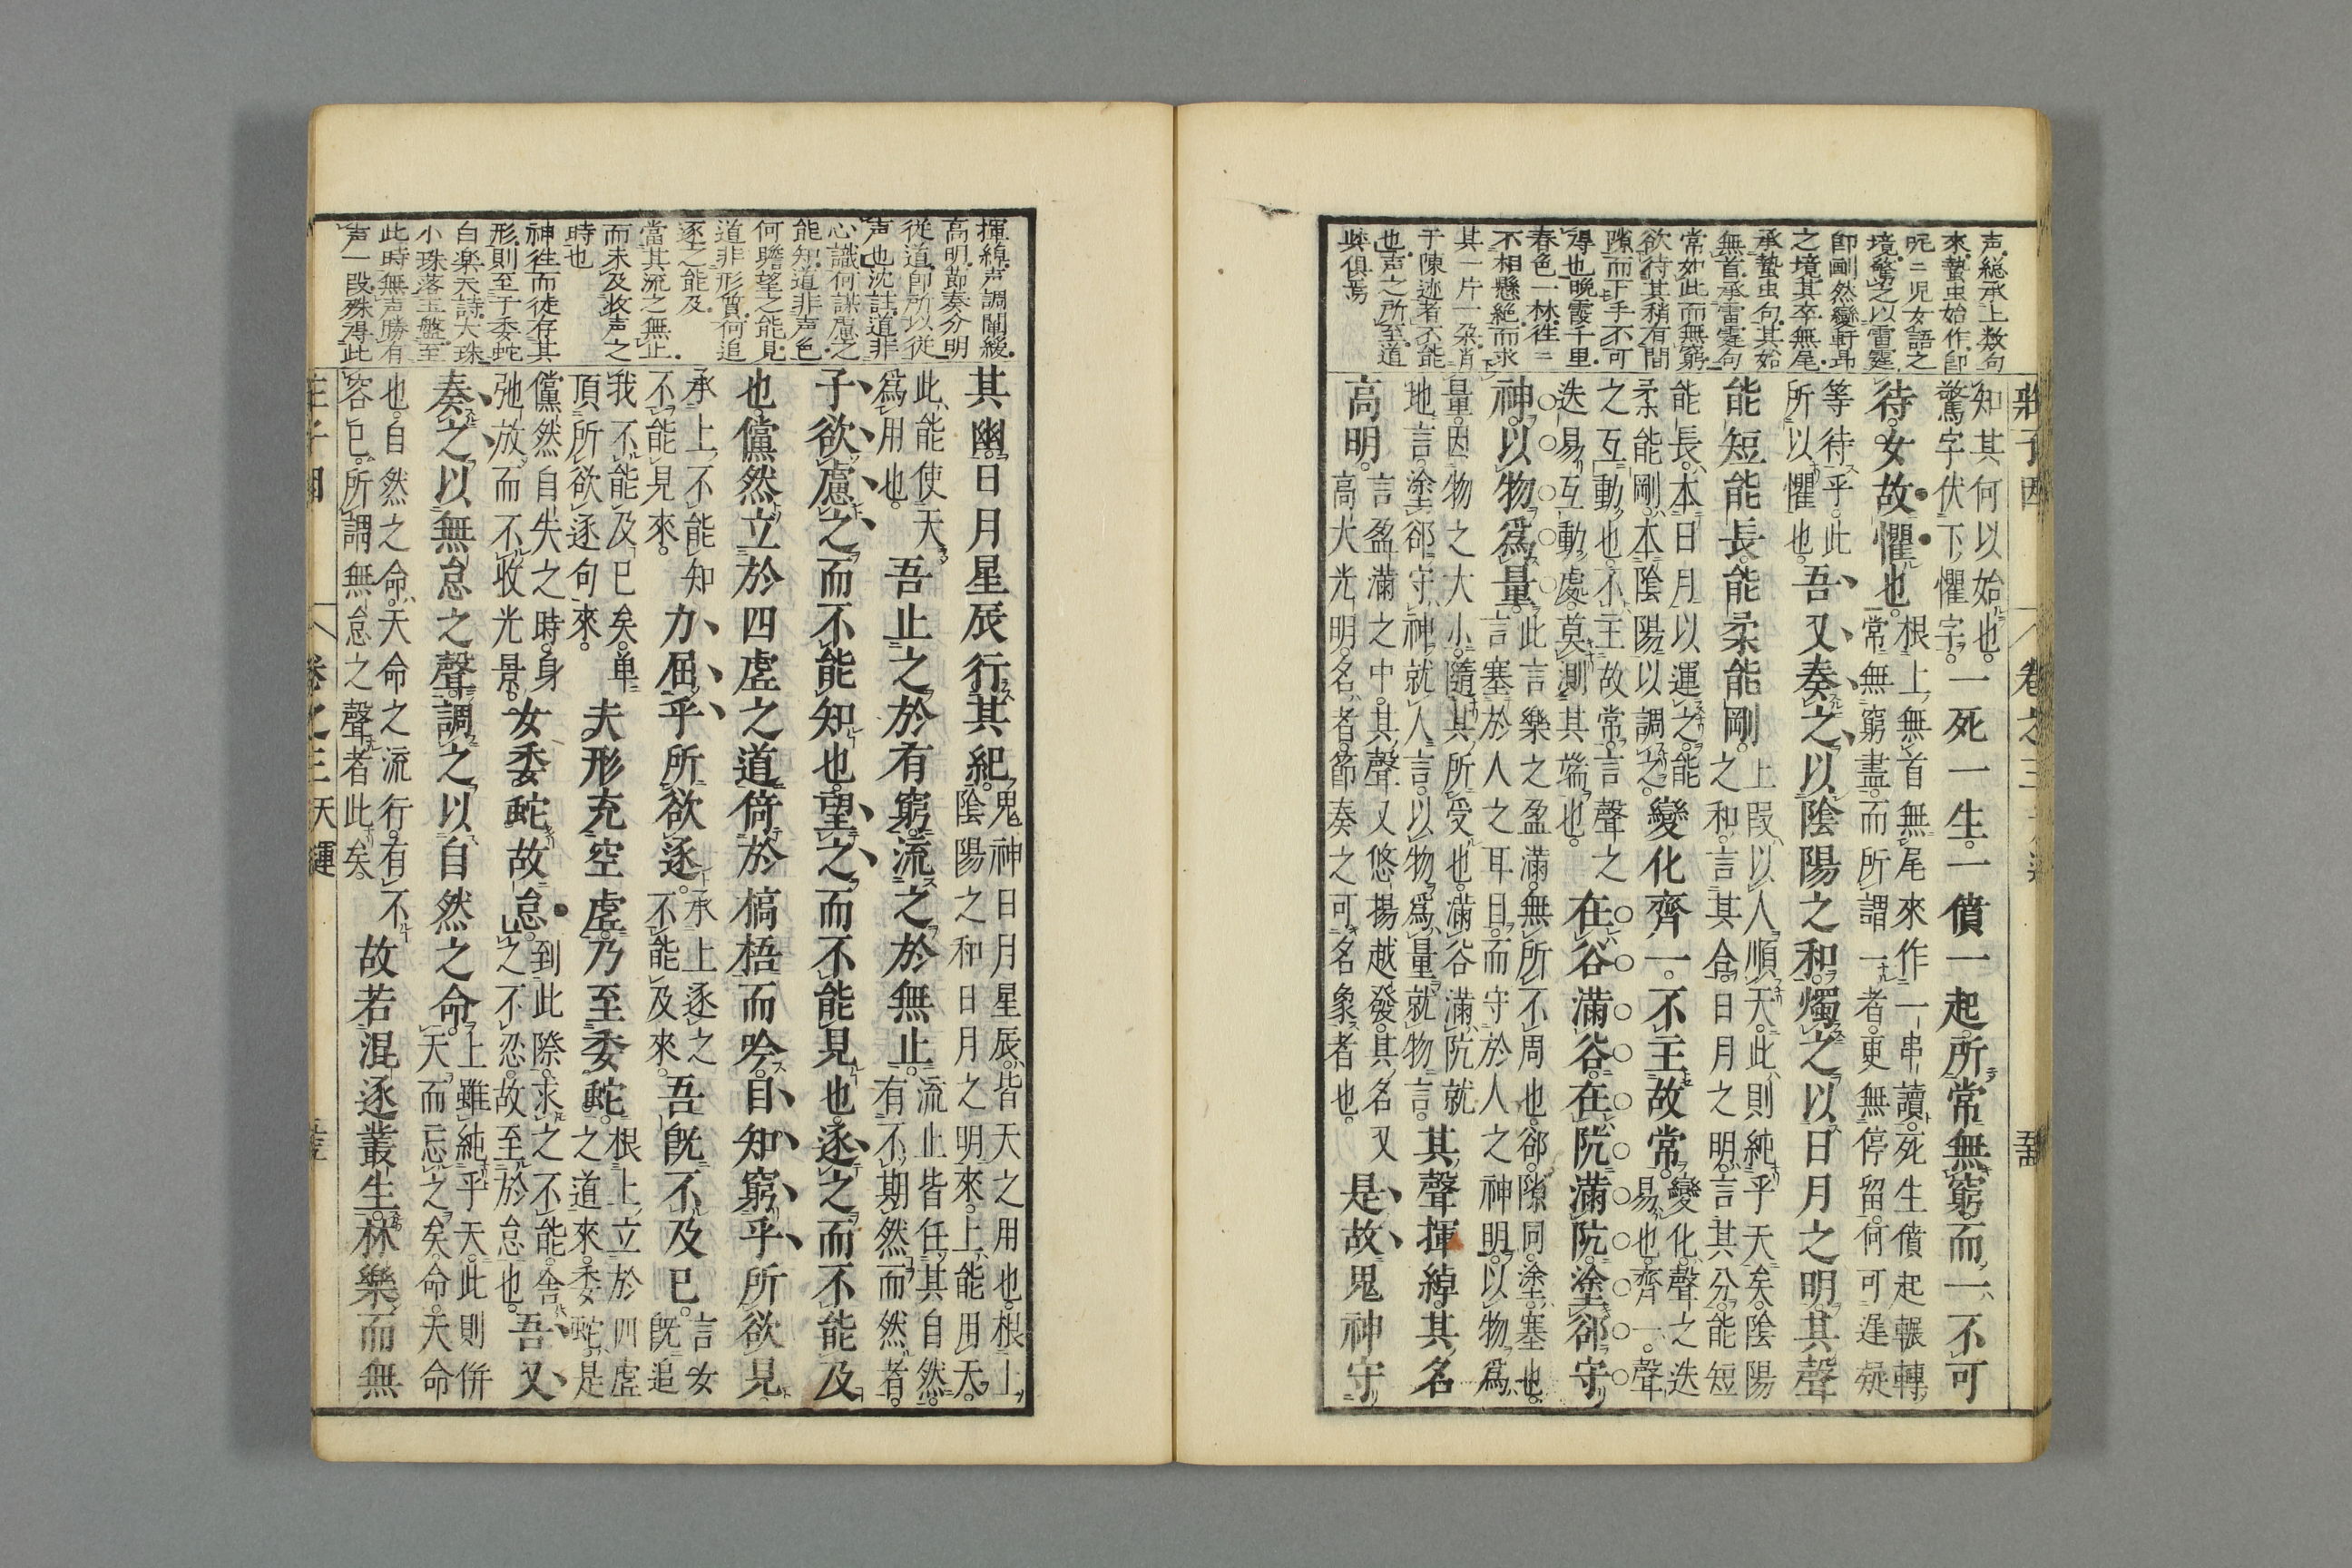 莊子因 卷之三
声総承上数句
來蟄虫始作卽
昵〻児女語之
境驚之以雷霆
卽劃然變軒昻
之境其卒無尾
承蟄虫句其始
無首承雷霆句
常如此而無窮
欲待其稍有間
隙而下手不可
得也晩霞千里
春色一林徃〻
不相懸絶而求
其一片一朶消
于陳迹者不能
也声之所至道
與俱焉
知其何以始也。
驚字伏下懼字。
一死一生。一僨一起。所常無窮。而一不可
待。女故懼也。
根上無首無尾來作一串讀。死生僨起輾轉
常無窮盡。而所謂一者。更無停留。何可遲疑
等待乎。此
所以懼也。
吾又奏之以陰陽之和。燭之以日月之明。其聲
能短能長。能柔能剛。
上叚以人順天。此則純乎天矣。陰陽
之和。言其合。日月之明。言其分。能短
能長。本日月以運之。能
柔能剛。本陰陽以調之。
變化齊一。不主故常。
變化。聲之迭
易也。齊一。聲
之互動也。不主故常。言聲之
迭易互動處。莫測其端也。
在谷滿谷。在阬滿阬。塗郤守
神。以物爲量。
此言樂之盈滿。無所不周也。郤。隙同。塗。塞也。
言塞於人之耳目。而守於人之神明。以物爲
量。因物之大小。隨其所受也。滿谷滿阬就
地言。塗郤守神就人言。以物爲量就物言。
其聲揮綽。其名
高明。
言盈滿之中。其聲又悠揚越發。其名又
高大光明。名者。節奏之可名象者也。
是故鬼神守
揮綽声調闡緩
高明節奏分明
從道卽所以從
声也沈註道非
心識何謀慮之
能知道非声色
何瞻望之能見
道非形質何追
逐之能及
當其流之無止
而未及收声之
時也
神徃而徒存其
形則至于委蛇
白楽天詩大珠
小珠落玉盤至
此時無声勝有
声一段殊得此
其幽。日月星辰行其紀。
鬼神日月星辰。皆天之用也。根上
陰陽之和日月之明來。上能用天。
此能使天
爲用也。
吾止之於有窮。流之於無止。
流止皆任其自然。
有不期然而然者。
子欲慮之而不能知也。望之而不能見也。逐之而不能及
也。儻然立於四虛之道。倚於槁梧而吟。目知窮乎所欲見
承上不能知
不能見來。
力屈乎所欲逐。
承上逐之
不能及來。
吾旣不及已。
言女
旣追
我不能及已矣。单
頂所欲逐句來。
夫形充空虛。乃至委蛇。
根上立於四虛
之道來。委蛇。是
儻然自失之時。身
弛放而不收光景。
女委蛇故怠。
到此際。求之不能。舍
之不忍。故至於怠也。
吾又
奏之以無怠之聲。調之以自然之命。
上雖純乎天。此則併
天而忘之矣。命。天命
也。自然之命。天命之流行。有不
容已。所謂無怠之聲者此矣。
故若混逐叢生。林樂而無
卷之三 天運